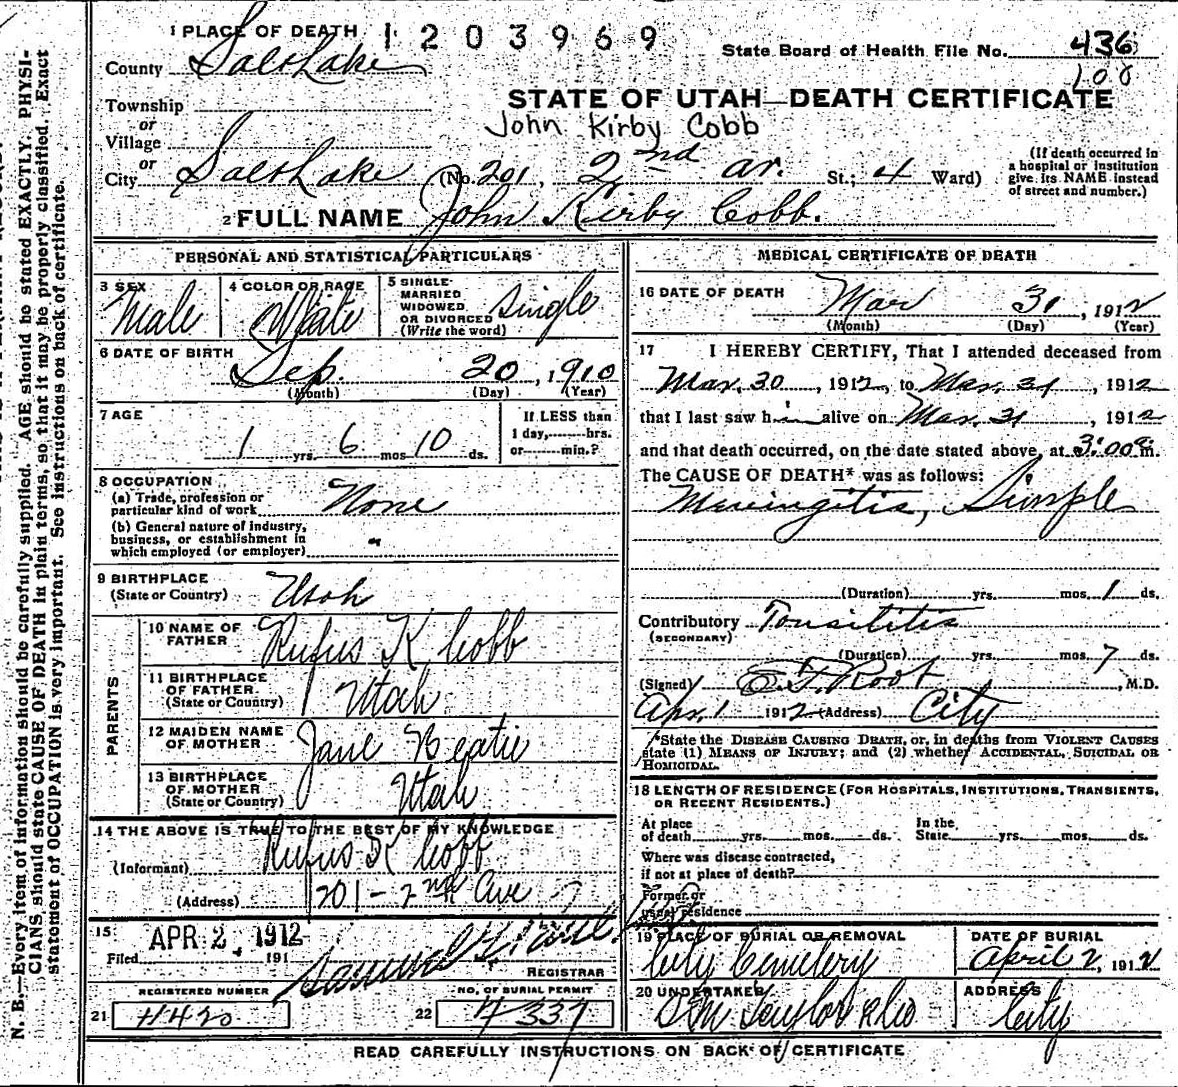 N. B.—Every item of information should be carefully supplied. AGE should be stated EXACTLY. PHYSI-
CIANS should state CAUSE OF DEATH in plain terms, so that it may be properly classified. Exact
statement of OCCUPATION is very important. See instructions on back of certificate.
1 PLACE OF DEATH 1203969
State Board of Health File No. 436
108
County Salt Lake
STATE OF UTAH—DEATH CERTIFICATE
Township
or
John Kirby Cobb
Village
or
City Salt Lake (No. 201, 2nd av. St.; 4 Ward)
(If death occurred in
a hospital or institution
give its NAME instead
of street and number.)
2 FULL NAME John Kirby Cobb.
PERSONAL AND STATISTICAL PARTICULARS
3 SEX
Male
4 COLOR OR RACE
White
5 SINGLE
MARRIED
WIDOWED
OR DIVORCED
(Write the word)
Single
6 DATE OF BIRTH
Sep. 20, 1910
(Month) (Day) (Year)
7 AGE
1 yrs. 6 mos 10 ds.
If LESS than
1 day, hrs.
or min.?
8 OCCUPATION
(a) Trade, profession or
particular kind of work None
(b) General nature of industry,
business, or establishment in
which employed (or employer)
9 BIRTHPLACE
(State or Country) Utah
PARENTS
10 NAME OF
FATHER Rufus K Cobb
11 BIRTHPLACE
OF FATHER
(State or Country) Utah
12 MAIDEN NAME
OF MOTHER Jane Beatie
13 BIRTHPLACE
OF MOTHER
(State or Country) Utah
14 THE ABOVE IS TRUE TO THE BEST OF MY KNOWLEDGE
(Informant) Rufus K Cobb
(Address) 201 - 2nd Ave
15
Filed APR 2, 1912 191
Samuel G. Paul
REGISTRAR
REGISTERED NUMBER
21 4420
NO. OF BURIAL PERMIT
22 4337
MEDICAL CERTIFICATE OF DEATH
16 DATE OF DEATH Mar 31, 1912
(Month) (Day) (Year)
17 I HEREBY CERTIFY, That I attended deceased from
Mar. 30, 1912, to Mar. 31, 1912
that I last saw him alive on Mar. 31, 1912
and that death occurred, on the date stated above, at 3:00 a. m.
The CAUSE OF DEATH* was as follows:
Meningitis, Simple
(Duration) yrs. mos. 1 ds.
Contributory Tonsilitis
(SECONDARY)
(Duration) yrs. mos. 7 ds.
(Signed) E. F. Root, M.D.
Apr. 1 1912 (Address) City
*State the DISEASE CAUSING DEATH, or, in deaths from VIOLENT CAUSES
state (1) MEANS OF INJURY; and (2) whether ACCIDENTAL, SUICIDAL OR
HOMICIDAL.
18 LENGTH OF RESIDENCE (FOR HOSPITALS, INSTITUTIONS, TRANSIENTS,
OR RECENT RESIDENTS.)
At place
of death yrs. mos. ds.
In the
State yrs. mos. ds.
Where was disease contracted,
if not at place of death?
Former or
usual residence
19 PLACE OF BURIAL OR REMOVAL
City Cemetery
DATE OF BURIAL
April 2, 1912
20 UNDERTAKER
S M Taylor & Co
ADDRESS
City
READ CAREFULLY INSTRUCTIONS ON BACK OF CERTIFICATE